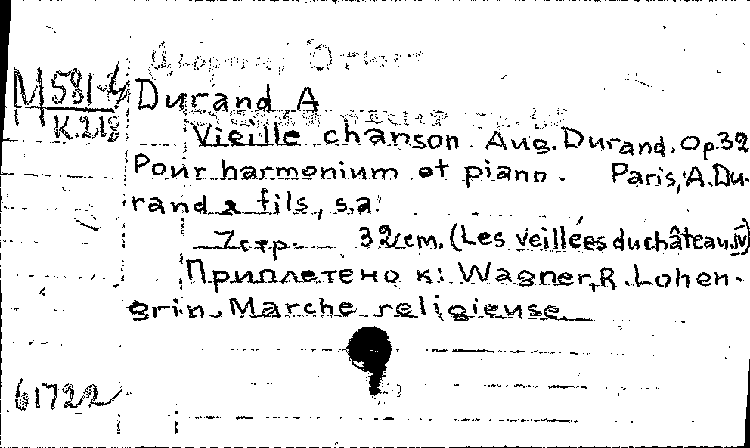 М 581-6
К.218
Durand A
Vieille chanson. Aug. Durand. Op.32
Pour harmonium et piano. Paris, A. Du-
rand & fils, s.a.
7 стр. 32 cm. (Les veillées du château. IV)
Приплетено к: Wagner, R. Lohen-
grin. Marche religieuse
61722